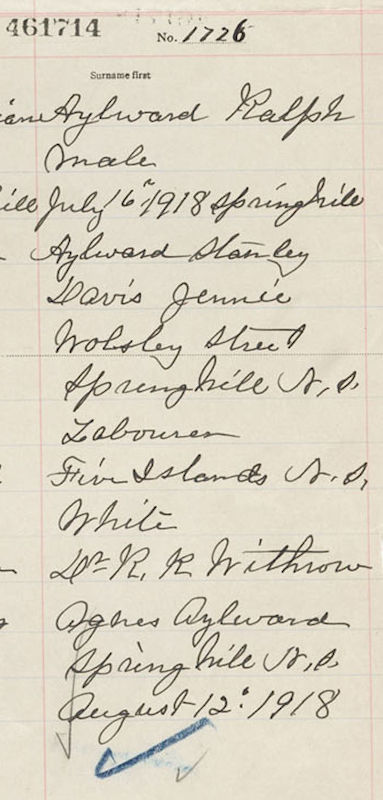 461714
No. 1726
Surname first
Aylward Ralph
Male
July 16" 1918 Springhill
Aylward Stanley
Davis Jennie
Wolsley Street
Springhill N.S.
Labourer
Five Islands N.S.
White
Dr R. K Withrow
Agnes Aylward
Springhill N.S.
August 12" 1918